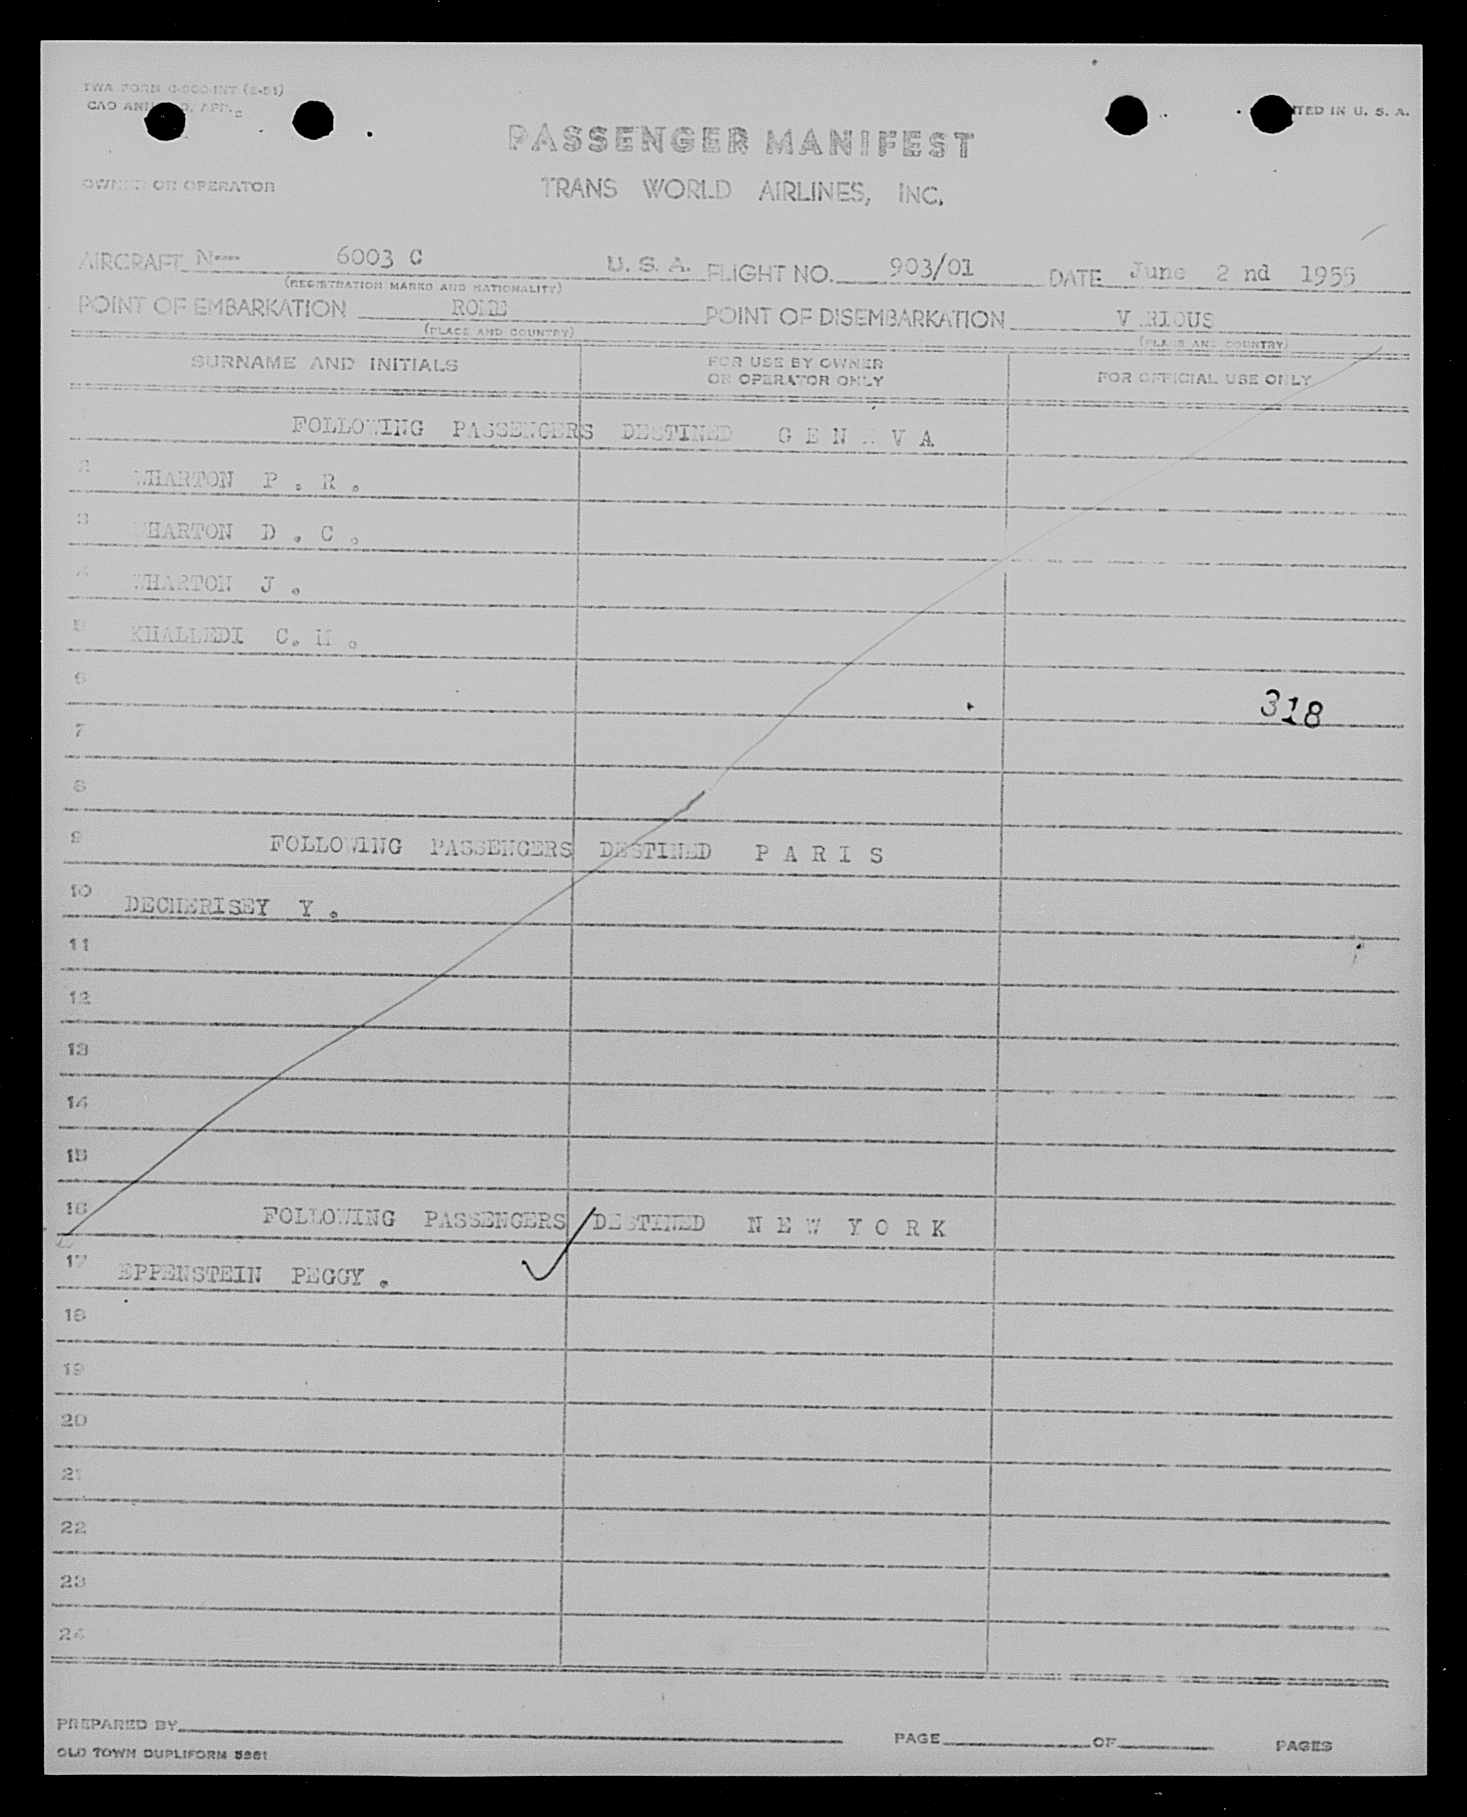 TWA FORM
PRINTED IN U. S. A.
PASSENGER MANIFEST
OWNER OR OPERATOR TRANS WORLD AIRLINES, INC.
AIRCRAFT N--- 6003 C U. S. A. FLIGHT NO. 903/01 DATE June 2 nd 1955
(REGISTRATION MARKS AND NATIONALITY)
POINT OF EMBARKATION ROME POINT OF DISEMBARKATION VARIOUS
(PLACE AND COUNTRY) (PLACE AND COUNTRY)
SURNAME AND INITIALS FOR USE BY OWNER OR OPERATOR ONLY FOR OFFICIAL USE ONLY
FOLLOWING PASSENGERS DESTINED G E N E V A
2 WHARTON P . R .
3 WHARTON D . C .
4 WHARTON J .
5 KHALLEDI C. M .
6
318
7
8
9 FOLLOWING PASSENGERS DESTINED P A R I S
10 DECHERISEY Y .
11
12
13
14
15
16 FOLLOWING PASSENGERS DESTINED N E W Y O R K
17 EPPENSTEIN PEGGY .
18
19
20
21
22
23
24
PREPARED BY PAGE OF PAGES
OLD TOWN DUPLIFORM